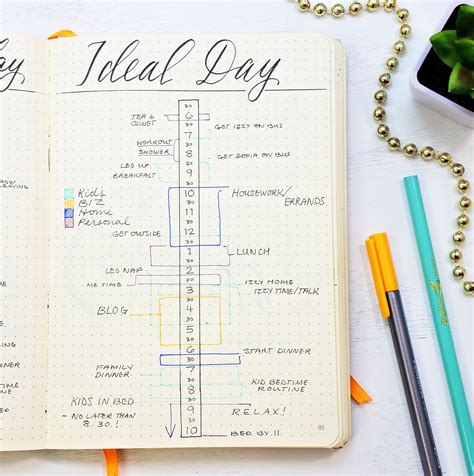 Ideal Day
30
TEA & 6
QUIET 30
7 GET IZZY ON BUS
WORKOUT 30
SHOWER 8 GET SOFIA ON BUS
LEO UP 30
BREAKFAST 9
30
Kids 10 HOUSEWORK/
BIZ 30 ERRANDS
Home 11
Personal 30
12
GET OUTSIDE 30
1 LUNCH
30
LEO NAP 2
ME TIME 30 IZZY HOME
3 IZZY TIME/TALK
30
BLOG 4
30
5
30
6 START DINNER
FAMILY 30
DINNER 7
30 KID BEDTIME
8 ROUTINE
KIDS IN BED 30
- NO LATER THAN 9 RELAX!
8:30! 30
10 BED BY 11.
85